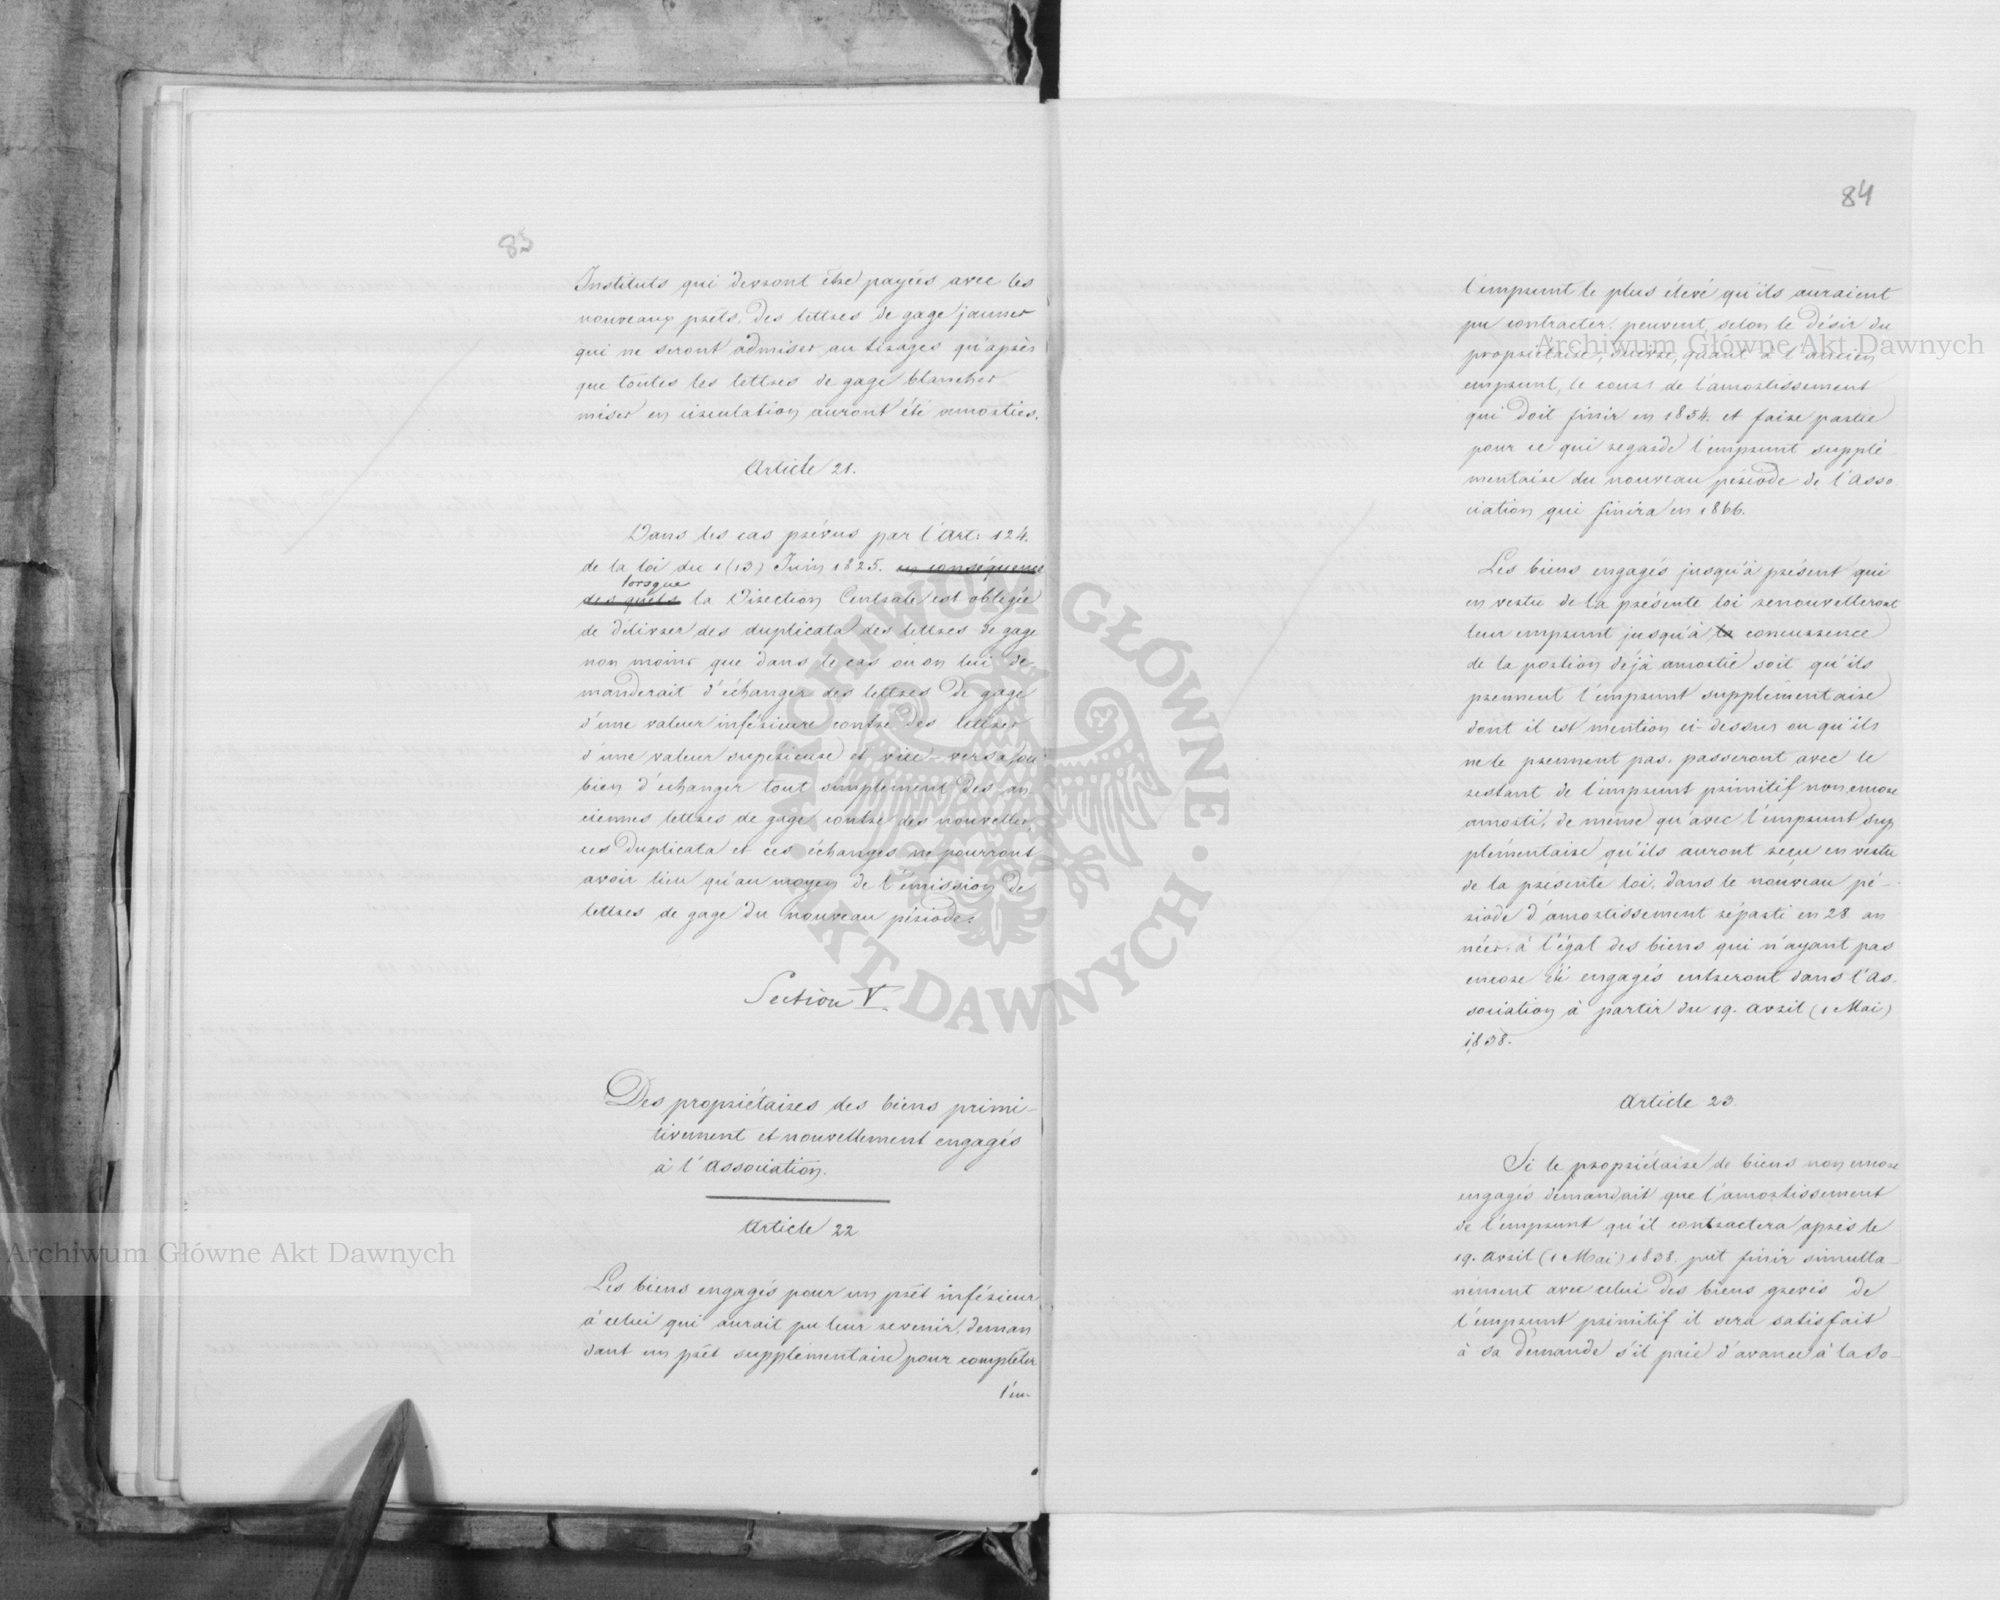 83
Instituts qui devront être payées avec les
nouveaux prêts, des lettres de gage jaunes
qui ne seront admises au tirages qu'après
que toutes les lettres de gage blanches
mises en circulation auront été amorties.
Article 21.
Dans les cas prévus par l'Art: 124.
de la loi du 1 (13) Juin 1825. en conséquence
lorsque
des quels la Direction Centrale est obligée
de délivrer des duplicata des lettres de gage
non moins que dans le cas où on lui de-
manderait d'échanger des lettres de gage
d'une valeur inférieure contre des lettres
d'une valeur superieure et vice-versa, ou
bien d'échanger tout simplement des an
ciennes lettres de gage contre des nouvelles,
ces duplicata et ces échanges ne pourront
avoir lieu qu'au moyen de l'émission de
lettres de gage du nouveau période.
Section V.
Des propriétaires des biens primi-
tivement et nouvellement engagés
à l'Association.
Article 22
Les biens engagés pour un prêt inférieur
à celui qui aurait pu leur revenir, deman
dant un prêt supplémentaire pour compléter
l'em-
84
l'emprunt le plus élevé qu'ils auraient
pu contracter, peuvent, selon le désir du
propriétaire, suivre, quant à l'ancien
emprunt, le cours de l'amortissement
qui doit finir en 1854. et faire partie
pour ce qui regarde l'emprunt supplé-
mentaire du nouveau période de l'Asso
ciation qui finira en 1866.
Les biens engagés jusqu'à présent qui
en vertu de la présente loi renouvelleront
leur emprunt jusqu'à la concurrence
de la portion déjà amortie soit qu'ils
prennent l'emprunt supplémentaire
dont il est mention ci-dessus ou qu'ils
ne le prennent pas, passeront avec le
restant de l'emprunt primitif non encore
amorti, de même qu'avec l'emprunt sup
plémentaire qu'ils auront reçu en vertu
de la présente loi, dans le nouveau pé-
riode d'amortissement réparti en 28 an
nées, à l'égal des biens qui n'ayant pas
encore été engagés entreront dans l'As-
sociation à partir du 19. Avril (1 Mai)
1838.
Article 23.
Si le propriétaire de biens non encore
engagés demandait que l'amortissement
de l'emprunt qu'il contractera après le
19. Avril (1 Mai) 1838. pût finir simulta-
nément avec celui des biens grevés de
l'emprunt primitif il sera satisfait
à sa demande s'il paie d'avance à la So-
ARCHIWUM GŁÓWNE · AKT DAWNYCH ·
Archiwum Główne Akt Dawnych
Archiwum Główne Akt Dawnych